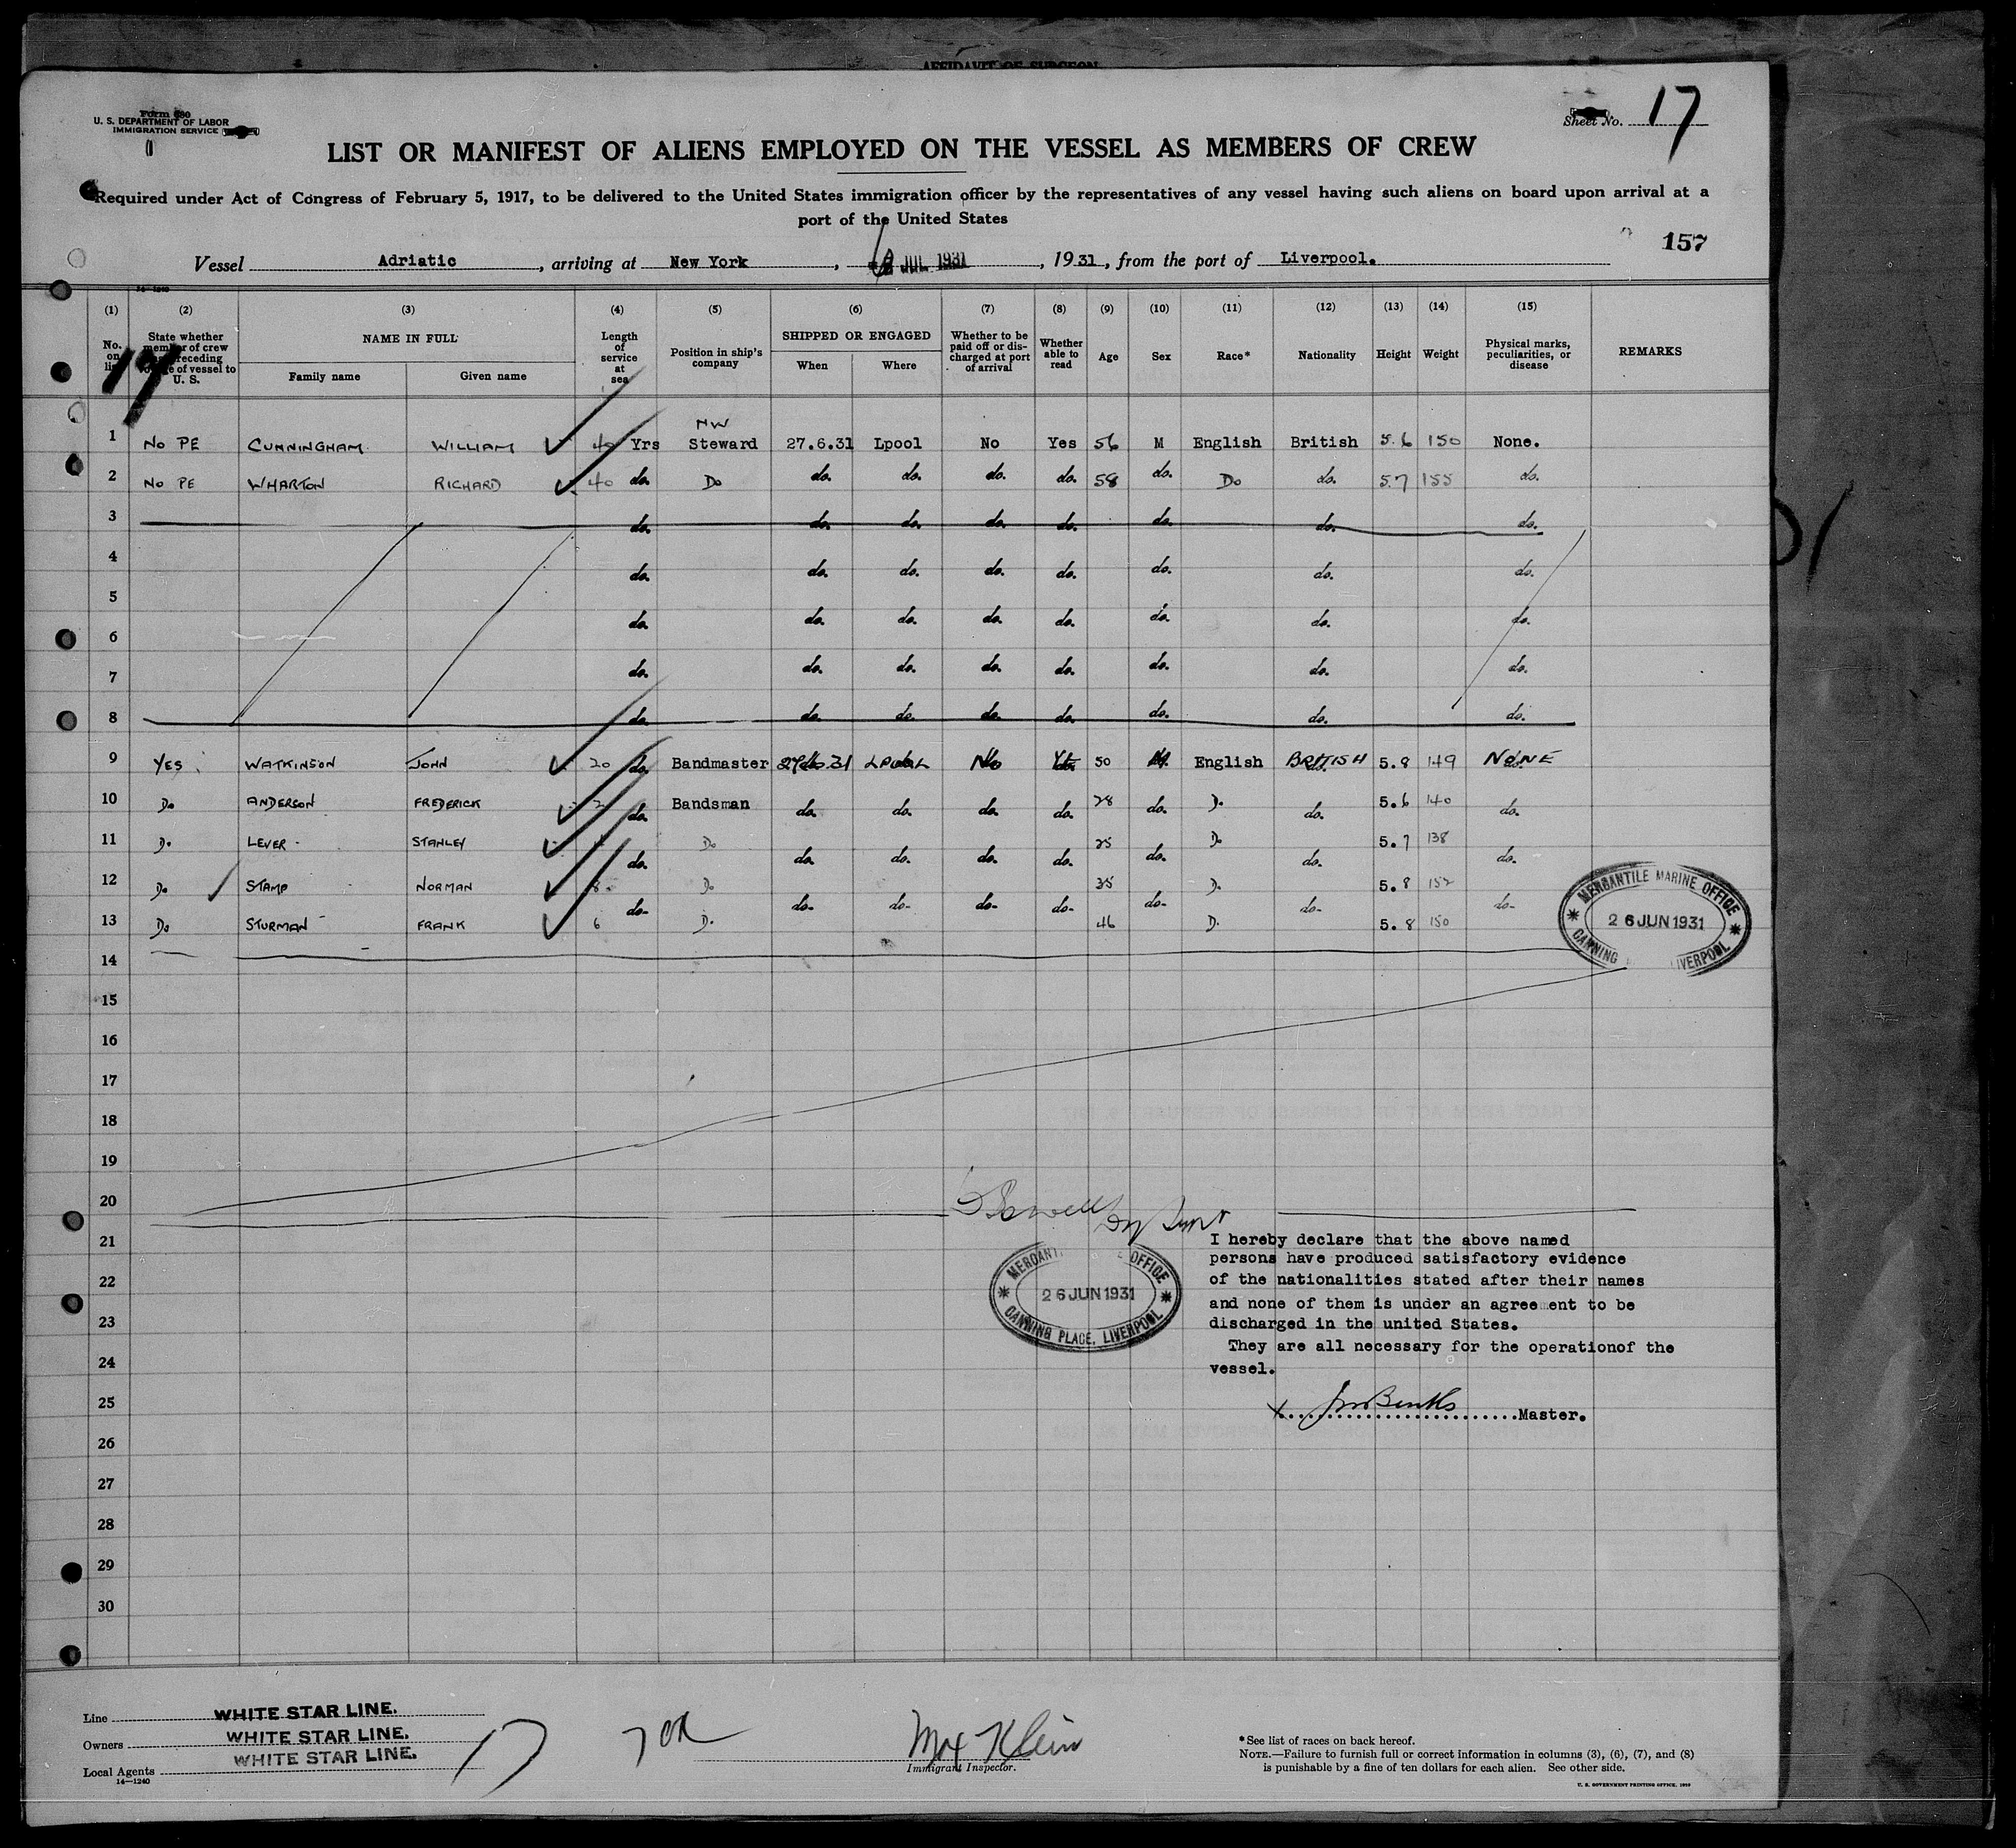 AFFIDAVIT OF SURGEON
Form 680
U. S. DEPARTMENT OF LABOR
IMMIGRATION SERVICE
Sheet No. 17
LIST OR MANIFEST OF ALIENS EMPLOYED ON THE VESSEL AS MEMBERS OF CREW
Required under Act of Congress of February 5, 1917, to be delivered to the United States immigration officer by the representatives of any vessel having such aliens on board upon arrival at a
port of the United States
157
Vessel Adriatic, arriving at New York, JUL 1931, 1931, from the port of Liverpool.
(1) (2) (3) (4) (5) (6) (7) (8) (9) (10) (11) (12) (13) (14) (15)
No. on list
State whether member of crew on preceding voyage of vessel to U. S.
NAME IN FULL
Family name Given name
Length of service at sea
Position in ship's company
SHIPPED OR ENGAGED
When Where
Whether to be paid off or discharged at port of arrival
Whether able to read
Age
Sex
Race*
Nationality
Height
Weight
Physical marks, peculiarities, or disease
REMARKS
17
NW
1 No PE CUNNINGHAM WILLIAM 40 Yrs Steward 27.6.31 Lpool No Yes 56 M English British 5.6 150 None.
2 No PE WHARTON RICHARD 40 do. Do do. do. do. do. 58 do. Do do. 5.7 155 do.
3 do. do. do. do. do. do. do. do.
4 do. do. do. do. do. do. do. do.
5 do. do. do. do. do. do. do. do.
6
7 do. do. do. do. do. do. do. do.
8 do. do. do. do. do. do. do. do.
9 YES WATKINSON JOHN 20 do. Bandmaster 27.6.31 LPOOL No Yes 50 M. English BRITISH 5.8 149 NONE
10 Do ANDERSON FREDERICK 2 do. Bandsman do. do. do. do. 28 do. Do. do. 5.6 140 do.
11 Do LEVER STANLEY do. Do do. do. do. do. 25 do. Do do. 5.7 138 do.
12 Do STAMP NORMAN 8 do- Do do- do- do- do- 35 do- Do. do- 5.8 152 do-
13 Do STURMAN FRANK 6 Do. 46 Do. 5.8 150
MERCANTILE MARINE OFFICE
26 JUN 1931
CANNING LIVERPOOL
14
15
16
17
18
19
20
21
22
23
24
25
26
27
28
29
30
MERCANTILE OFFICE
26 JUN 1931
CANNING PLACE, LIVERPOOL
I hereby declare that the above named
persons have produced satisfactory evidence
of the nationalities stated after their names
and none of them is under an agreement to be
discharged in the united States.
They are all necessary for the operationof the
vessel.
Master.
Line WHITE STAR LINE.
Owners WHITE STAR LINE.
Local Agents WHITE STAR LINE.
14—1240
17
Max Klein
Immigrant Inspector.
*See list of races on back hereof.
NOTE.—Failure to furnish full or correct information in columns (3), (6), (7), and (8)
is punishable by a fine of ten dollars for each alien. See other side.
U. S. GOVERNMENT PRINTING OFFICE.